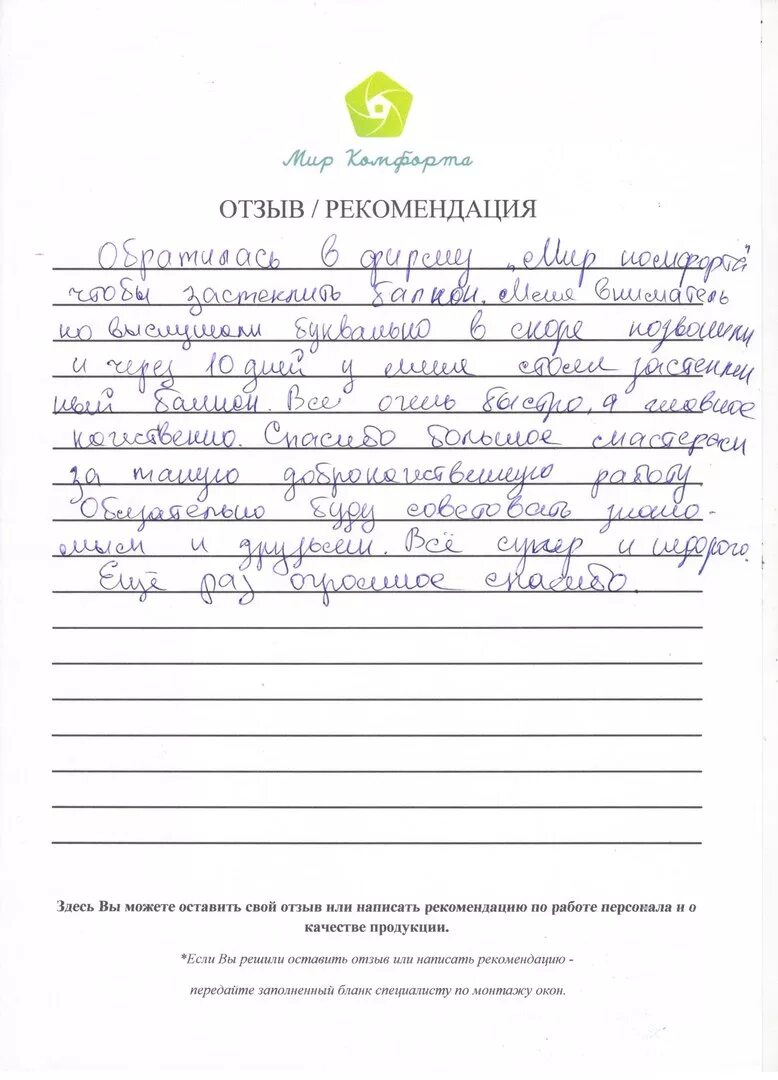 Мир Комфорта
ОТЗЫВ / РЕКОМЕНДАЦИЯ
Обратилась в фирму „Мир комфорта"
чтобы застеклить балкон. Меня вниматель
но выслушали буквально в скоре позвонили
и через 10 дней у меня стоял застеклен
ный балкон. Всё очень быстро, а главное
качественно. Спасибо большое мастерам
за такую доброкачественную работу.
Обязательно буду советовать знако-
мым и друзьям. Всё супер и недорого.
Ещё раз огромное спасибо.
Здесь Вы можете оставить свой отзыв или написать рекомендацию по работе персонала и о
качестве продукции.
*Если Вы решили оставить отзыв или написать рекомендацию -
передайте заполненный бланк специалисту по монтажу окон.